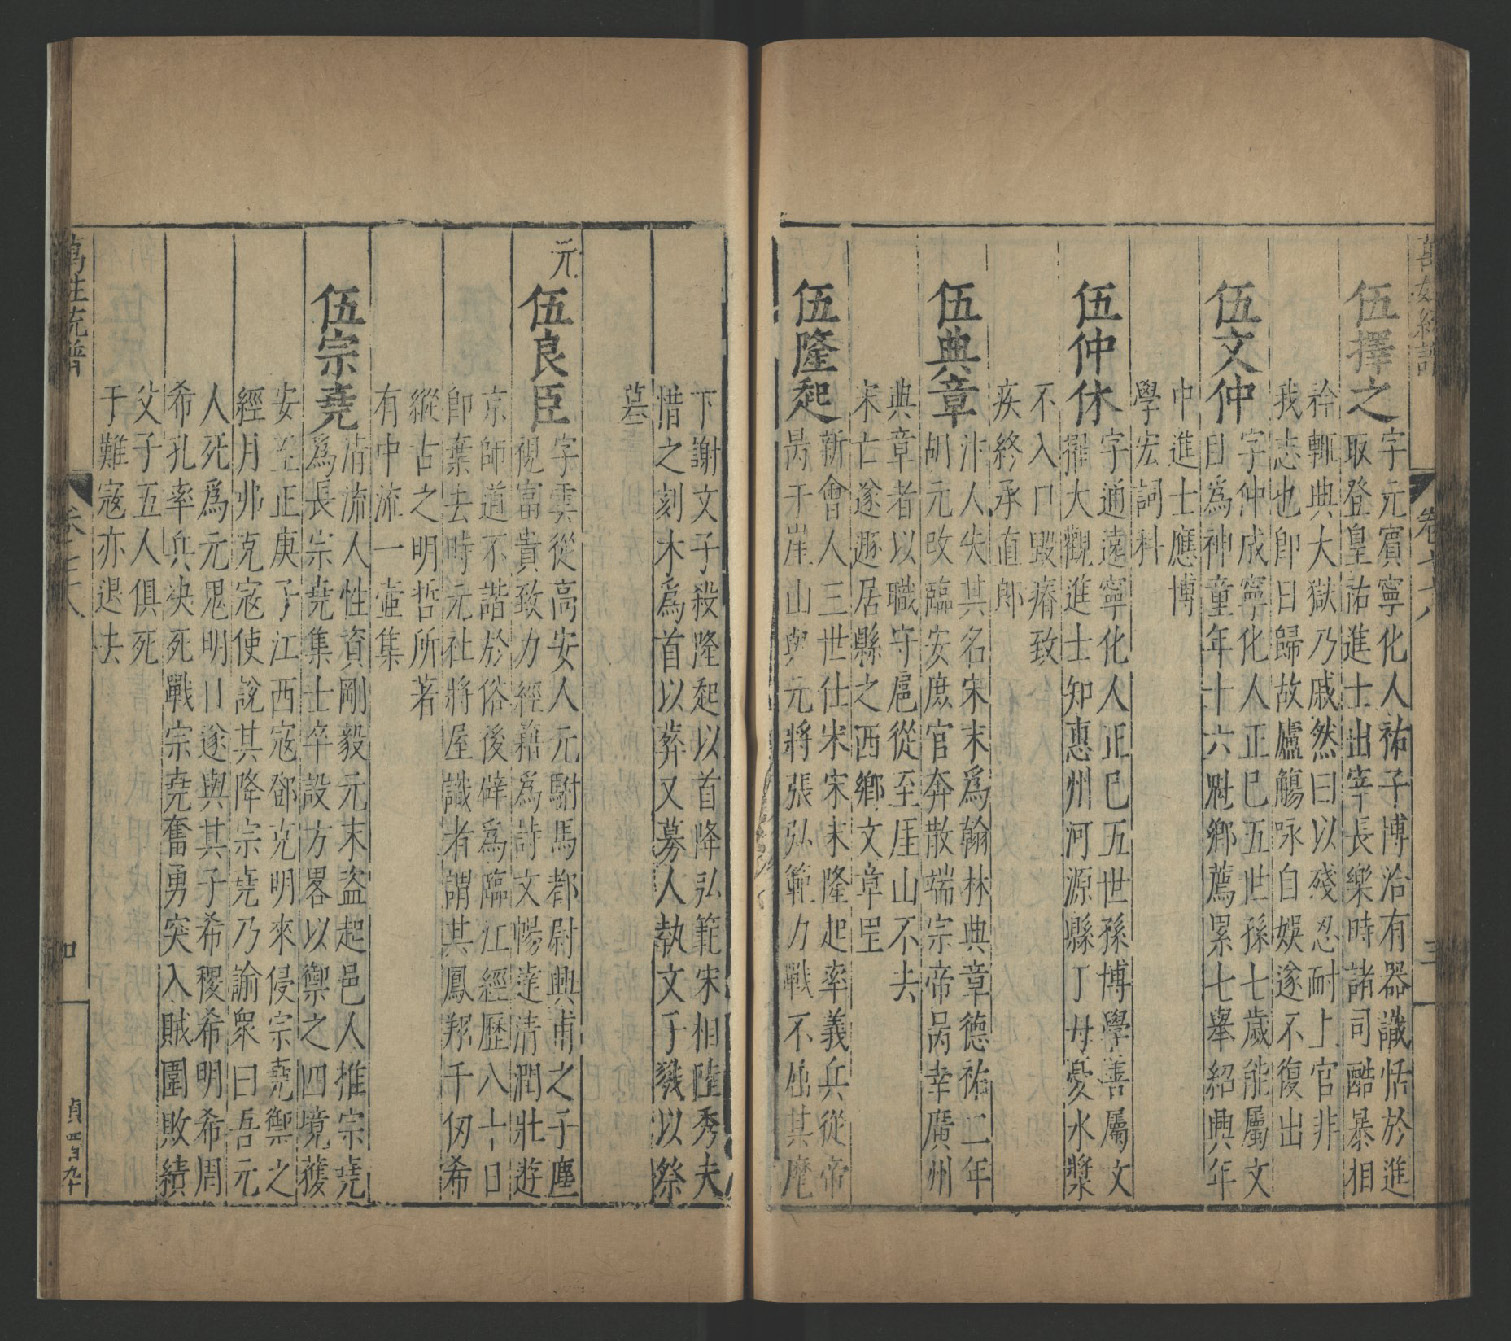 萬姓統譜
卷七十八
三
伍擇之
字元賓寧化人祐子博洽有器識恬於進
取登皇祐進士出宰長樂時諸司酷暴相
矜輒典大獄乃戚然曰以殘忍耐上官非
我志也卽日歸故廬觴咏自娛遂不復出
伍文仲
字仲成寧化人正己五世孫七歲能屬文
目為神童年十六魁鄉薦累七舉紹興年
中進士應博
學宏詞科
伍仲休
字通遠寧化人正己五世孫博學善屬文
擢大觀進士知惠州河源縣丁母憂水漿
不入口毀瘠致
疾終承直郎
伍典章
汴人失其名宋末爲翰林典章德祐二年
胡元改臨安庶官奔散端宗帝昺幸廣州
典章者以職守扈從至厓山不去
宋亡遂遯居縣之西鄉文章里
伍隆起
新會人三世仕宋宋末隆起率義兵從帝
昺于崖山與元將張弘範力戰不屈其麾
下謝文子殺隆起以首降弘範宋相陸秀夫
惜之刻木爲首以葬又募人執文子戮以祭
墓
元
伍良臣
字雲從高安人元駙馬都尉興甫之子塵
視富貴致力經籍爲詩文暢達清潤壯遊
京師道不諧於俗後辟爲臨江經歷八十日
卽棄去時元社將屋識者謂其鳳翔千仞希
縱古之明哲所著
有中流一壺集
伍宗堯
清流人性資剛毅元末盜起邑人推宗堯
爲長宗堯集士卒設方畧以禦之四境獲
安至正庚子江西寇鄧克明來侵宗堯禦之
經月弗克寇使說其降宗堯乃諭衆曰吾元
人死爲元鬼明日遂與其子希稷希明希周
希孔率兵決死戰宗堯奮勇突入賊圍敗績
父子五人俱死
于難寇亦退去
萬姓統譜
卷七十八
四
貞四百九十